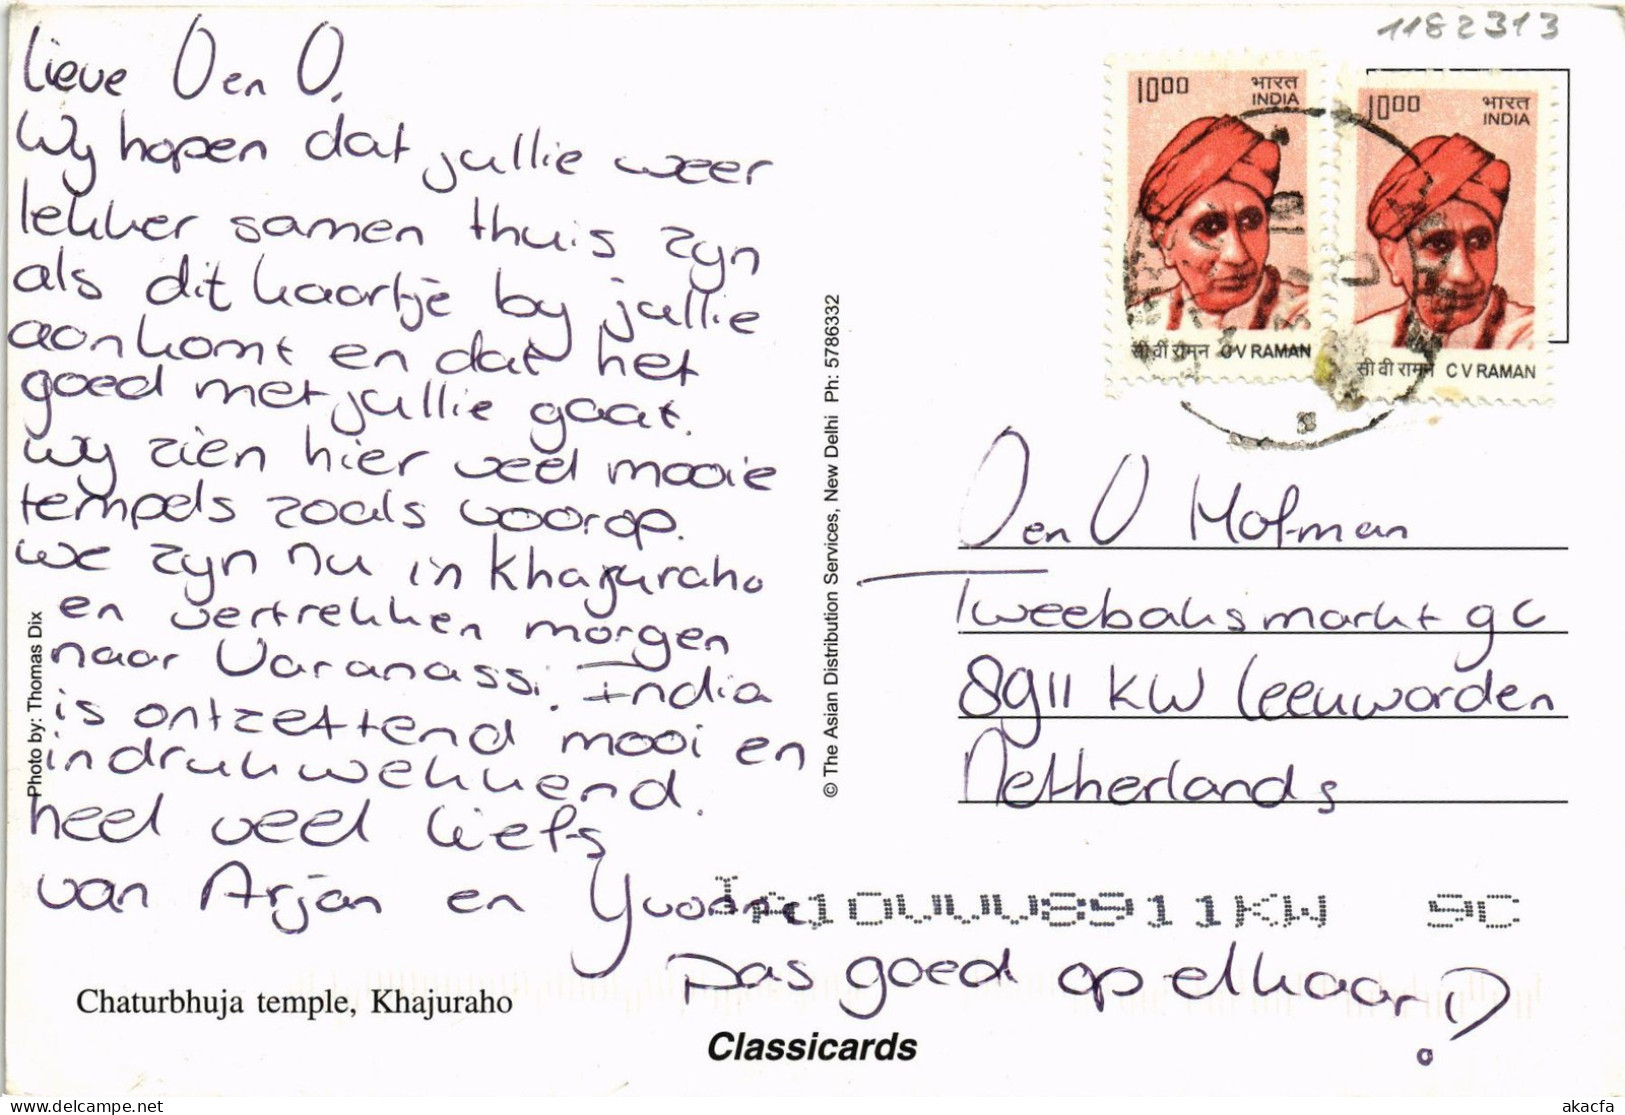 1182313
lieve O en O,
Wy hopen dat jullie weer
lekker samen thuis zyn
als dit kaartje by jullie
aankomt en dat het
goed met jullie gaat.
Wy zien hier veel mooie
tempels zoals voorop.
We zyn nu in Khajuraho
en vertrekken morgen
naar Varanassi. India
is ontzettend mooi en
indrukwekkend.
heel veel liefs
van Arjan en Yvonne
Pas goed op elkaar!
Photo by: Thomas Dix
Chaturbhuja temple, Khajuraho
Classicards
© The Asian Distribution Services, New Delhi Ph: 5786332
1000 भारत
INDIA
सी वी रामन C V RAMAN
1000 भारत
INDIA
सी वी रामन C V RAMAN
O en O Hofman
Tweebaksmarkt 9c
8911 KW Leeuwarden
Netherlands
8911KW 9C
Delcampe.net
akacfa